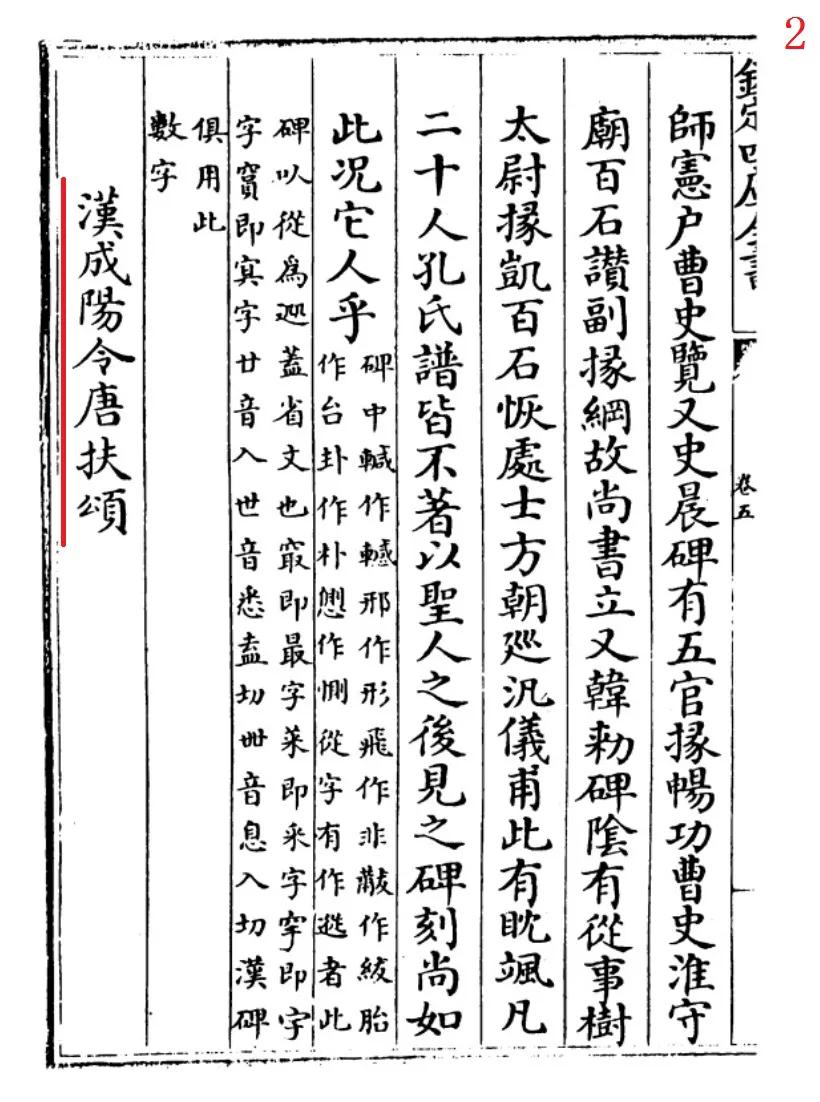 2
欽定四庫全書
卷五
師憲户曹史覽又史晨碑有五官掾暢功曹史淮守
廟百石讃副掾綱故尚書立又韓勑碑陰有從事樹
太尉掾凱百石恢處士方朝廵汎儀甫此有眈颯凡
二十人孔氏譜皆不著以聖人之後見之碑刻尚如
此况它人乎
碑中轗作轗邢作形飛作非黻作紱胎
作台卦作朴作惻從字有作者此
碑以從爲蓋省文也冣即最字菜即采字穻即宇
字即寘字廿音入世音悉盍切卌音息入切漢碑
俱用此
數字
漢成陽令唐扶頌